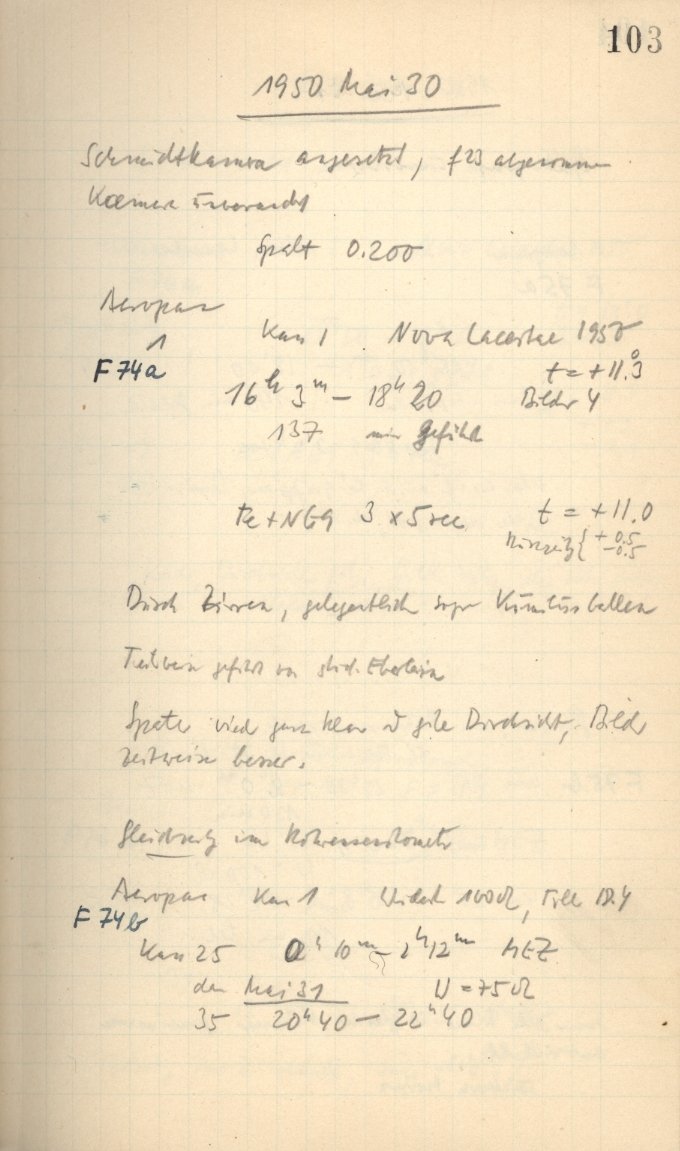 103
1950 Mai 30
Schmidtkamera angesetzt, f23 abgenommen
Kamera überwacht
Spalt 0.200
Aeropan
1 Kass 1 Nova Lacertae 1950
F 74a t = +11.3
16h 3m – 18h 20 Bilder 4
137 min geführt
Fe+NG9 3 x 5 sec t = +11.0
+0.5
-0.5
Durch Zirren, gelegentlich sogar Kumulusballen
Teilweise geführt von
Später wieder ganz klar u gute Durchsicht, Bilder
zeitweise besser.
Gleichzeitig im Röhrensensitometer
Aeropan Kass 1 100 Ω, 18.4
F 74b
25 0h 10m – 2h 12m MEZ
den Mai 31 W = 75 Ω
35 20h 40 – 22h 40